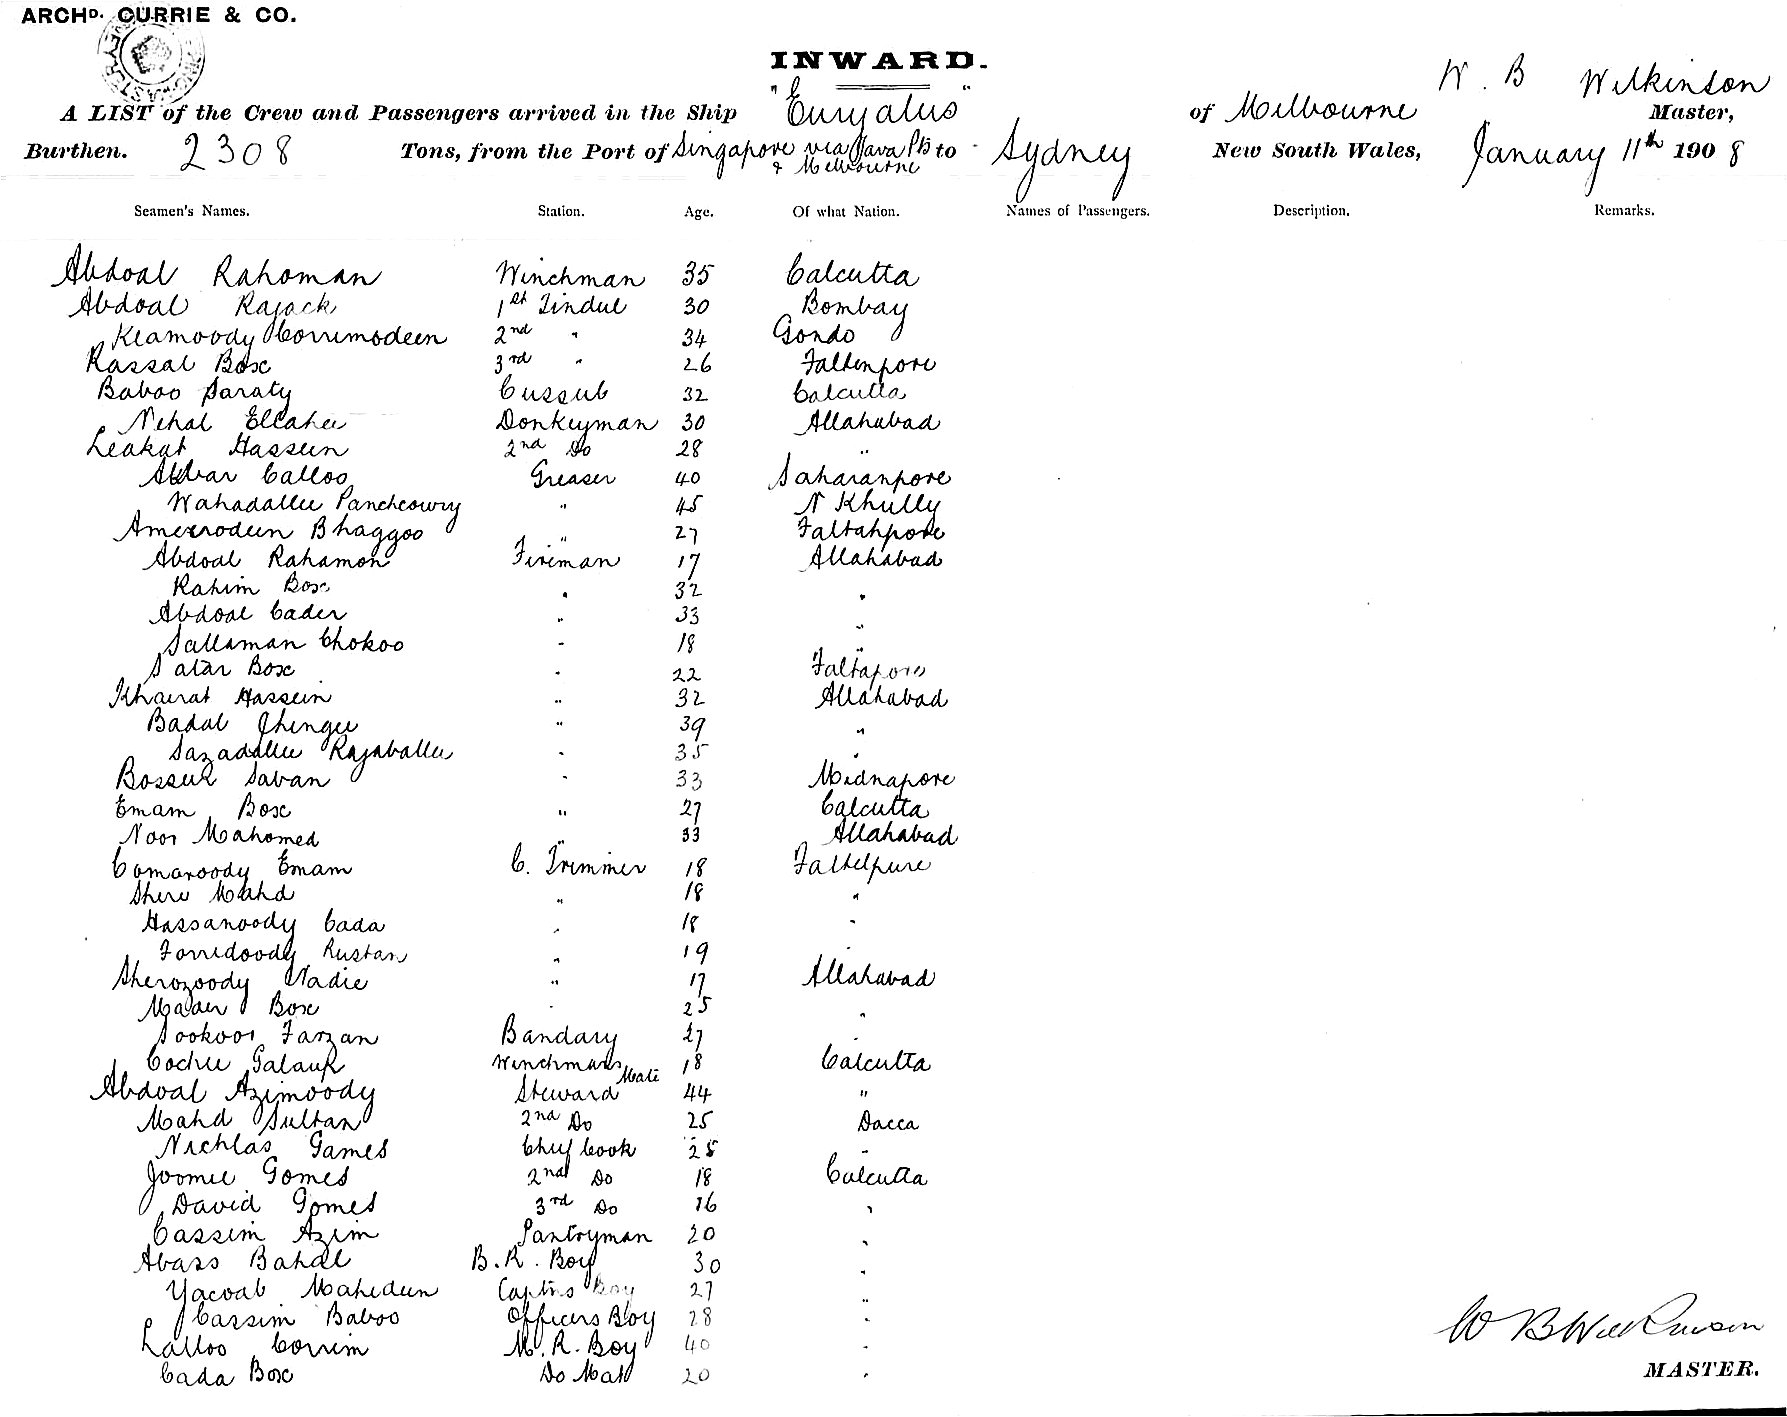 ARCHD. CURRIE & CO.
INWARD.
W. B Wilkinson
A LIST of the Crew and Passengers arrived in the Ship "Euryalus" of Melbourne Master,
Burthen. 2308 Tons, from the Port of Singapore via Java Pts & Melbourne to Sydney New South Wales, January 11th 1908
Seamen's Names. Station. Age. Of what Nation. Names of Passengers. Description. Remarks.
Abdoal Rahoman Winchman 35 Calcutta
Abdoal Rajack 1st Tindul 30 Bombay
Keamoody Corrimodeen 2nd " 34 Gondo
Rassal Box 3rd " 26 Faltenpore
Baboo Saraty Cussub 32 Calcutta
Nehal Ellahee Donkeyman 30 Allahabad
Leakat Hassein 2nd Do 28 "
Akbar Calloo Greaser 40 Saharanpore
Wahadallee Pancheowry " 45 N Khully
Ameerodeen Bhaggoo " 27 Faltahpore
Abdoal Rahamon Fireman 17 Allahabad
Rahim Box " 32 "
Abdoal Cader " 33 "
Sallaman Chokoo " 18 "
Satar Box " 22 Faltapore
Khairat Hassein " 32 Allahabad
Badal Jhingee " 39 "
Sazadallee Rajaballee " 35 "
Bossek Saban " 33 Midnapore
Emam Box " 27 Calcutta
Noor Mahomed " 33 Allahabad
Comaroody Emam C. Trimmer 18 Faltelpure
Shere Mahd " 18 "
Hassanoody Cada " 18 "
Forridoody Rustan " 19 "
Sherozoody Nadie " 17 Allahabad
Mader Box " 25 "
Sookoor Farzan Bandary 27 "
Cochee Galauk Winchmans Mate 18 Calcutta
Abdoal Azimoody Steward 44 "
Mahd Sultan 2nd Do 25 Dacca
Nichlas Games Chief Cook 28 "
Joomie Gomes 2nd Do 18 Calcutta
David Gomes 3rd Do 16 "
Cassim Azim Pantryman 20 "
Abass Bahal B. R. Boy 30 "
Yacoab Mahedeen Captns Boy 27 "
Cassim Baboo Officers Boy 28 "
Lalloo Corrim M. R. Boy 40 "
Cada Box Do Mate 20 "
W B Wilkinson
MASTER.